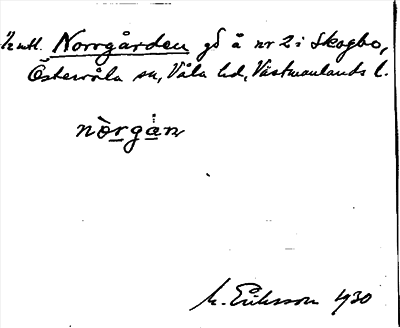 ½ mtl. Norrgården gd å nr 2 i Skogbo,
Östervåla sn, Våla hd, Västmanlands l.
nòrgȧ́n
M. Eriksson 1930